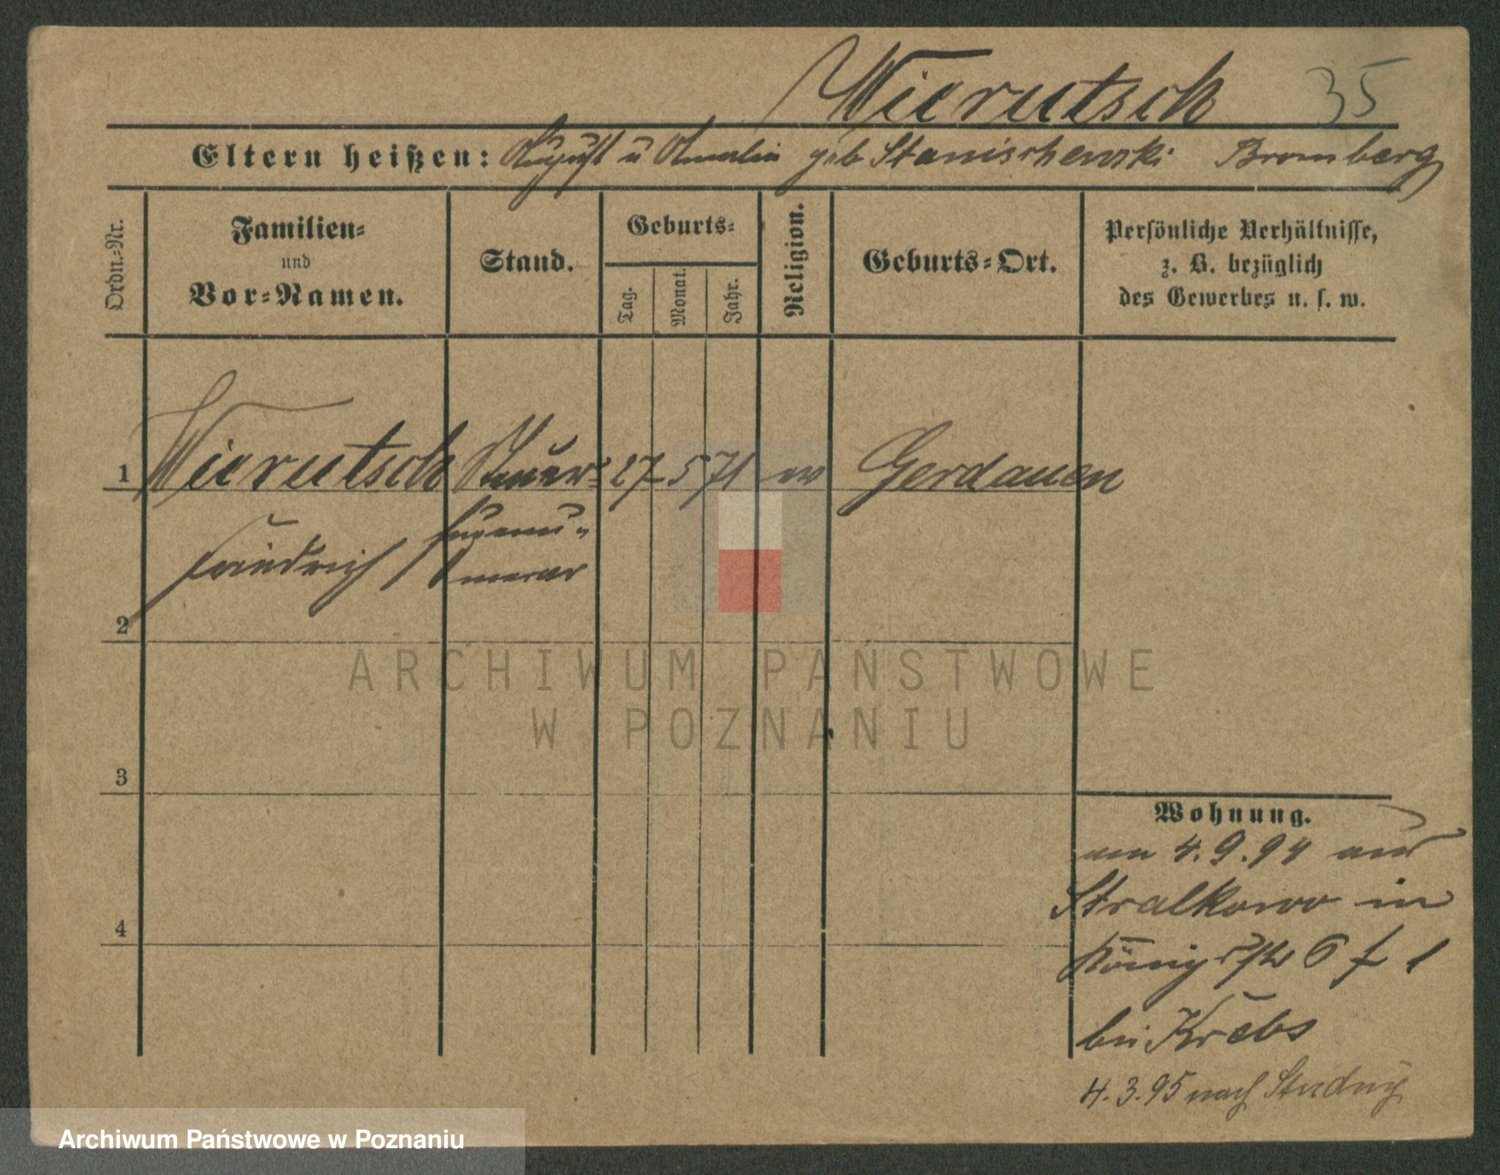 Wierutsch 35
Eltern heißen: August u Amalia geb Stanischewski Bromberg
Ordn.=Nr.
Familien=
und
Vor=Namen.
Stand.
Geburts=
Tag.
Monat.
Jahr.
Religion.
Geburts=Ort.
Persönliche Verhältnisse,
z. B. bezüglich
des Gewerbes u. s. w.
1 Wierutsch Steuer= 27 5 71 ev Gerdauen
Friedrich
Supernu=
merar
2
3
4
Wohnung.
am 4.9.94 aus
Stralkowo in
Königstr 6 I
bei Krebs
4.3.95 nach
ARCHIWUM PAŃSTWOWE
W POZNANIU
Archiwum Państwowe w Poznaniu